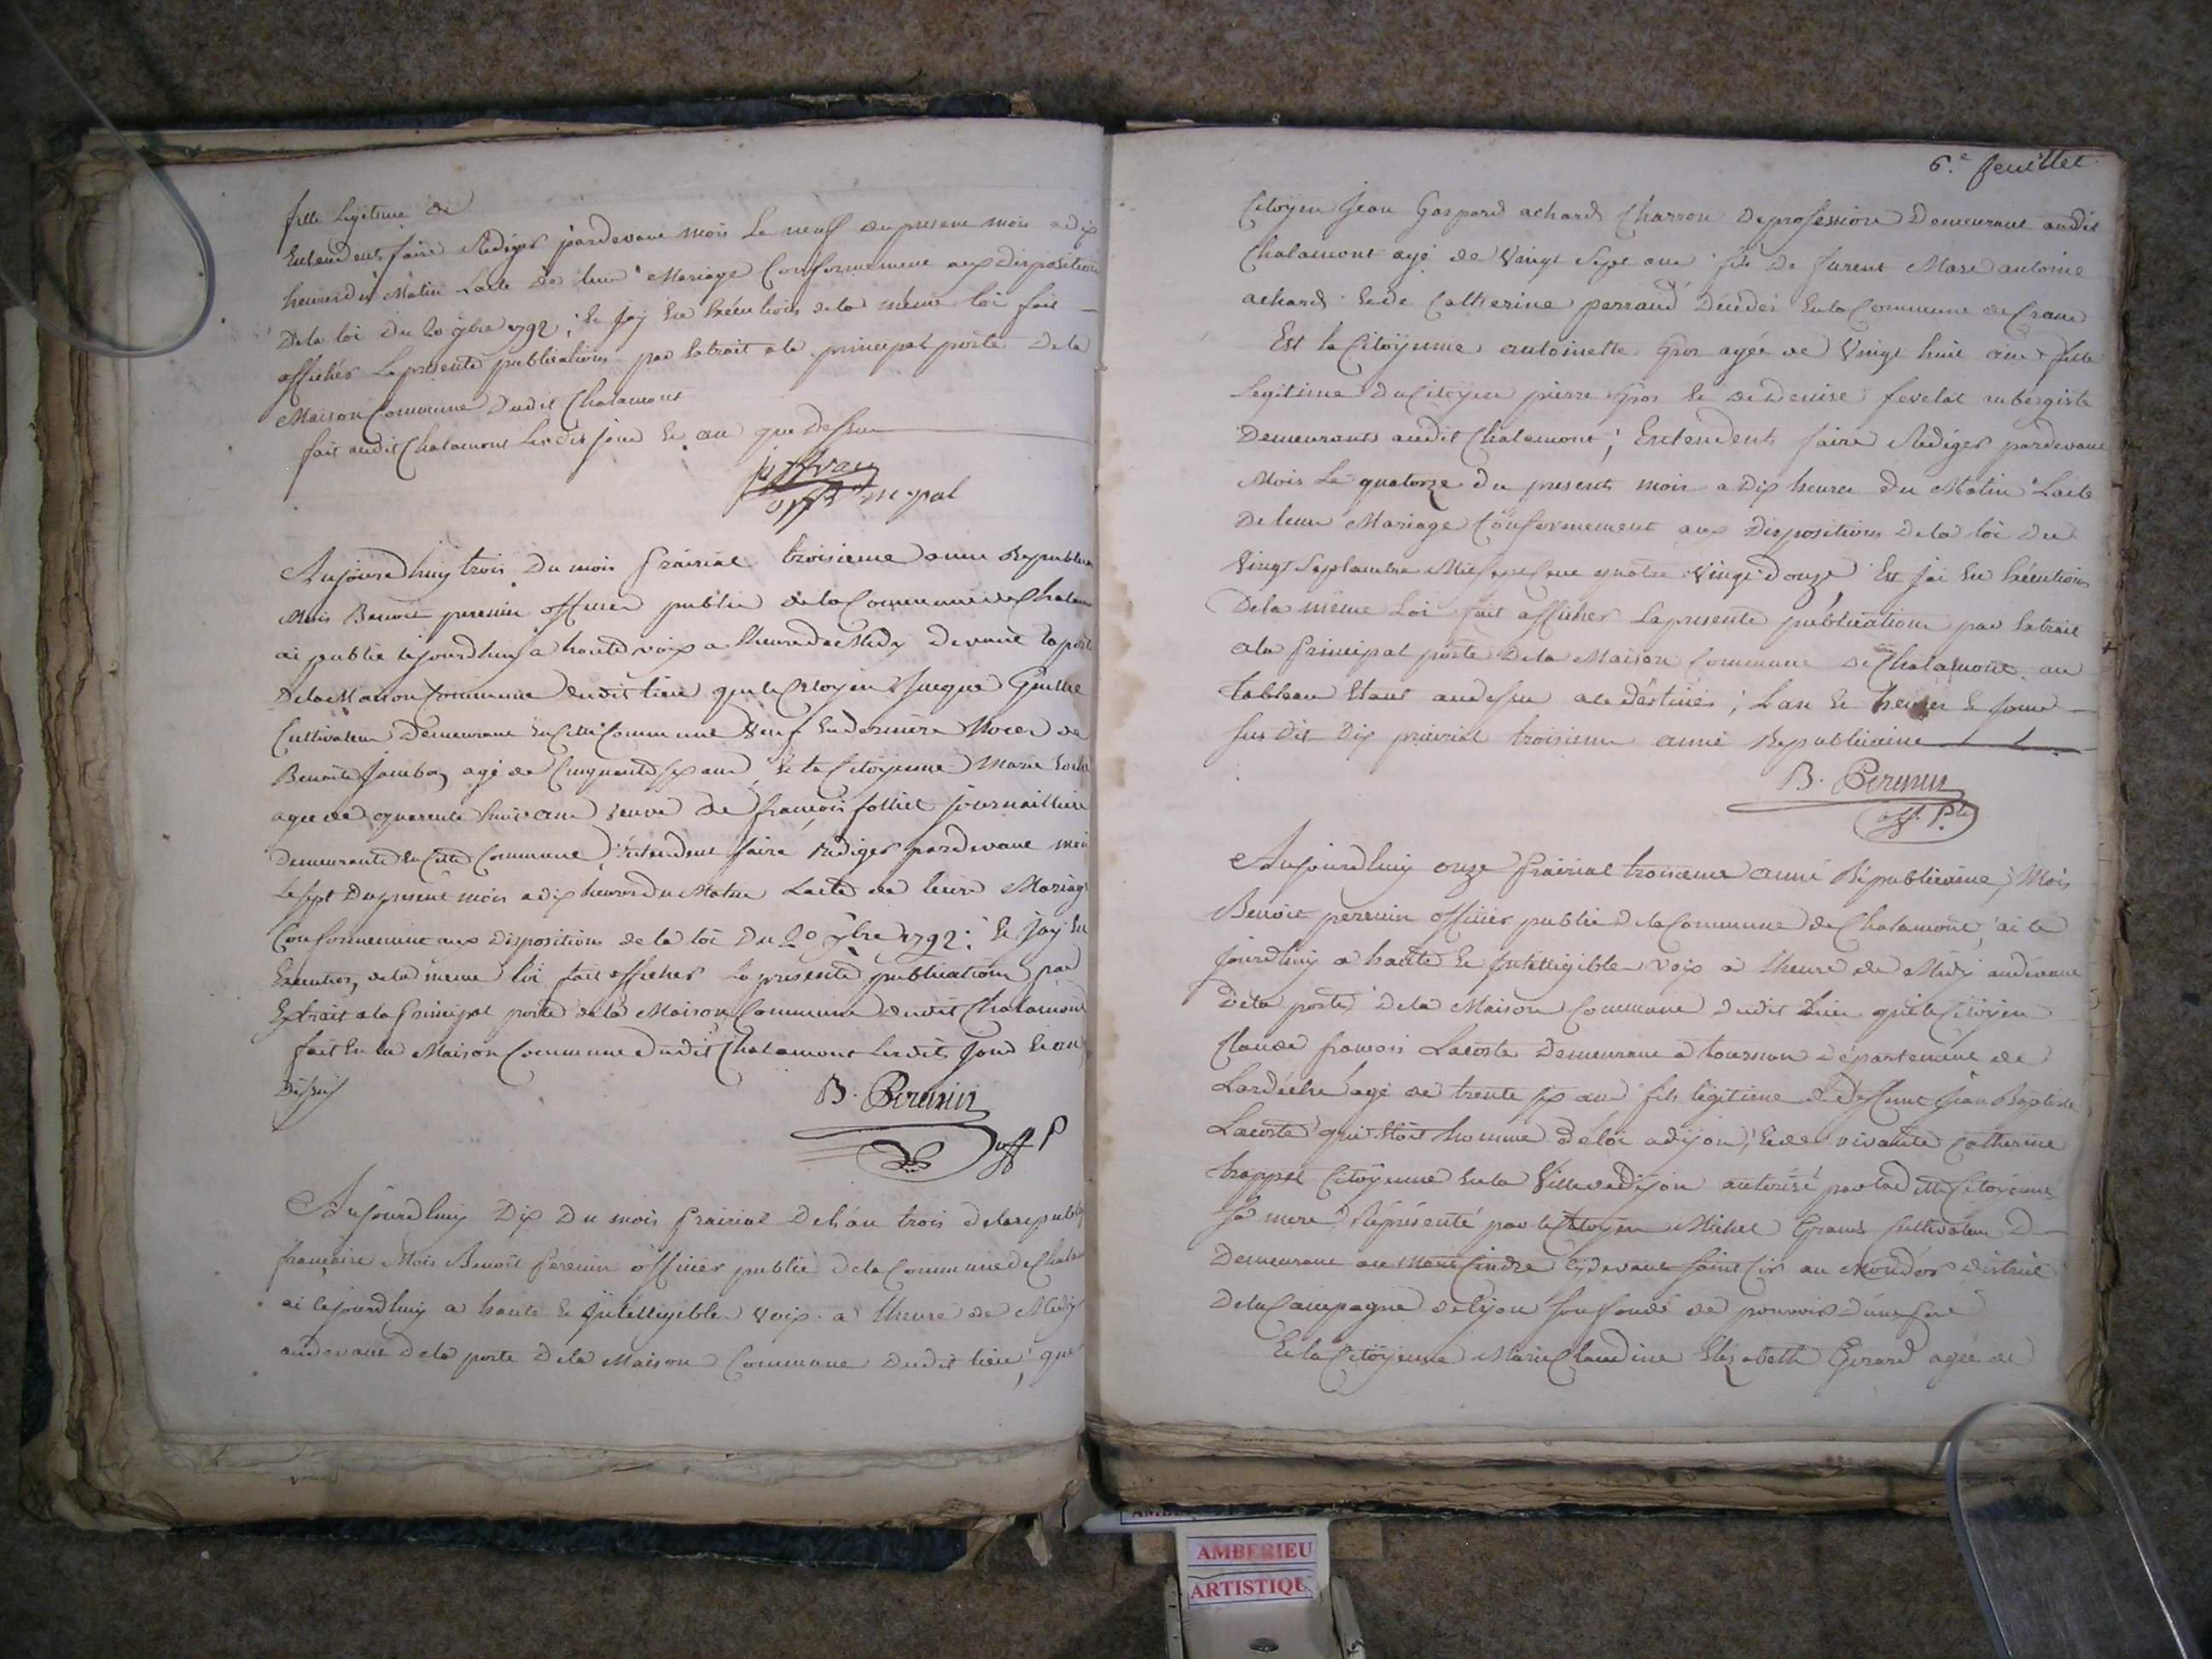 fille Legitime de
Entendent faire Rediger pardevant mois Le neuf du present mois a dix
heures du Matin Lacte de leur Mariage Conformement aux disposition
De la loi Du 20 7bre 1792; Et Jay En Exécution de la même loi fait
afficher La presente publications par Extrait a la principal porte De la
Maison Commune Dudit Chalamont
fait audit Chalamont Lesdits jour Et an que Dessus
off mcpal
Aujourdhuy trois Du mois Prairial troisieme anne Republica
Mois Benoit perenin officier public de la Commune de Chalam
ai publié cejourdhuy a haute voix a lheure de Midy devant la porte
De la Maison Commune dudit lieu que le Citoyen Jacque
Cultivateur Demeurant En Cette Commune Veuf En derniere Noces de
Benoite agé de Cinquante six ans, Et la Citoyenne Marie
agee de quarente huit ans veuve de françois folliet journailliere
Demeurante En Cette Commune, Entendent faire rediger pardevant moi
Le sept Du present mois a dix heures du Matin Lacte de leure Mariage
Conformement aux Disposition de la loi Du 20 7bre 1792: Et Jay En
Execution, de la meme loi fait afficher La presente publication par
Extrait a la Principal porte de la Maison Commune dudit Chalamont
fait En la Maison Commune Dudit Chalamont Lesdits jour Et an
Dessus
B. Perenin
off P
Aujourdhuy Dix Du mois Prairial De l'an trois de la republi
française Mois Benoit Perenin officier public De la Commune de Chalam
ai cejourdhuy a haute Et Intelligible Voix a lheure de Midy
audevant De la porte De la Maison Commune Dudit lieu, que
6.e feuillet
Citoyen Jean Gaspard achard Charron De profession Demeurant audit
Chalamont agé de Vingt Sept ans fils De furent Marc antoine
achard Et de Catherine perraud Décédés En la Commune de Crans
Est la Citoyenne antoinette Gros agée de Vingt huit ans fille
Legitime Du Citoyen pierre Gros Et de Denise fevelat aubergiste
Demeurants audit Chalamont; Entendent faire Rediger pardevant
Mois Le quatorze du present mois a Dix heures du Matin Lacte
De leure Mariage Conformement aux Dispositions De la loi Du
Vingt Septembre Mil Sept Cent quatre Vingt douze, Est Jai En Exécution
De la même Loi fait afficher La presente publication par Extrait
a la Principal porte De la Maison Commune de Chalamont au
tableau Etant audessu a ce déstiné; Lan Et heure Et Jour
sus Dit Dix prairial troisieme anné Republicaine
B. Perenin
off. P.
Aujourdhuy onze Prairial troisieme anné Républicaine, Mois
Benoit perenin officier public De la Commune de Chalamont, ai ce
jourdhuy a haute Et Intelligible Voix a lheure de Midy audevant
De la porte De la Maison Commune Dudit Lieu que le Citoyen
Claude françois Lacoste Demeurant a tournon Département de
Lardéche agé de trente six ans fils légitime de deffunt Jean Baptiste
Lacoste qui Etoit homme de loi a dijon, Et de vivante Catherine
Citoyenne En la Ville de Dijon autorisé par ladite Citoyenne
Sa mere, Réprésenté par le Citoyen Michel Grand Cultivateur D
Demeurant au Mont Cindre Cydevant Saint Cir au Mondor district
De la Campagne de Lyon Son fondé de pouvoir
Et la Citoyenne Marie Claudine Elizabeth Girard agée de
AMBERIEU
ARTISTIQU